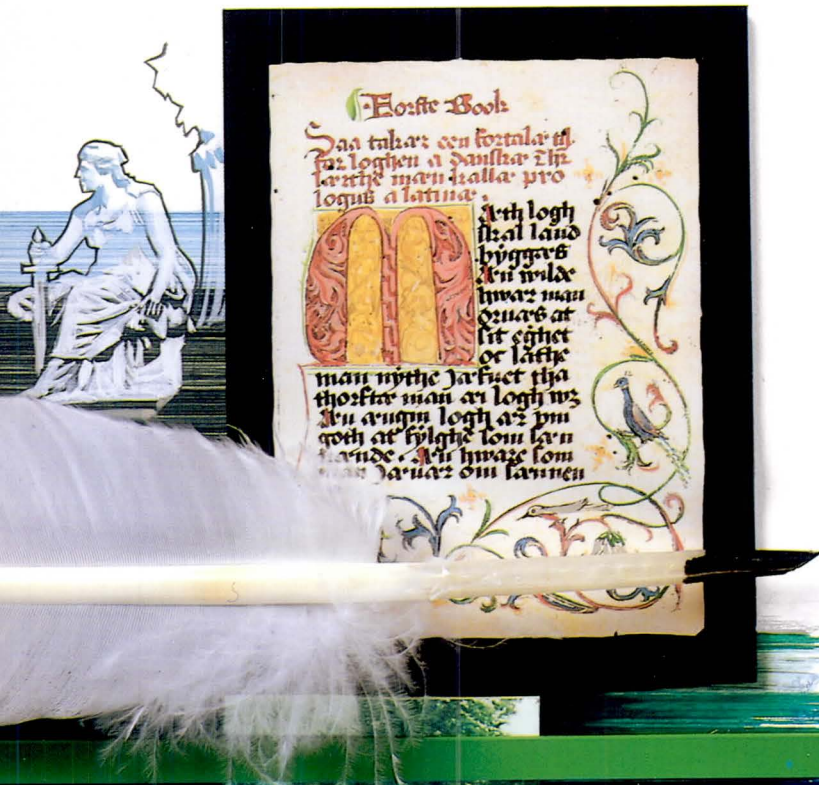 Forste Book
Saa takær een fortalæ til
for loghen a danskæ Thr
lærthe mæn kallæ pro
logus a latinæ.
Mæth logh
skal land
byggæs
Æn wilde
hwær man
oruæs at
sit eghet
oc lathe
man nythe Jæfnet tha
thorftæ man æi logh wz
Æn ængin logh ær
goth at fylghe som sæn
Æn hwaræ som
man Jæuær om sannen